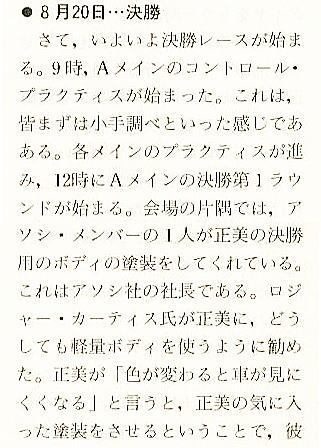 ● 8月20日…決勝
さて，いよいよ決勝レースが始ま
る。9時，Aメインのコントロール・
プラクティスが始まった。これは，
皆まずは小手調べといった感じであ
ある。各メインのプラクティスが進
み，12時にAメインの決勝第1ラウ
ンドが始まる。会場の片隅では，ア
ソシ・メンバーの1人が正美の決勝
用のボディの塗装をしてくれている。
これはアソシ社の社長である。ロジ
ャー・カーティス氏が正美に，どう
しても軽量ボディを使うように勧め
た。正美が「色が変わると車が見に
くくなる」と言うと，正美の気に入
った塗装をさせるということで，彼